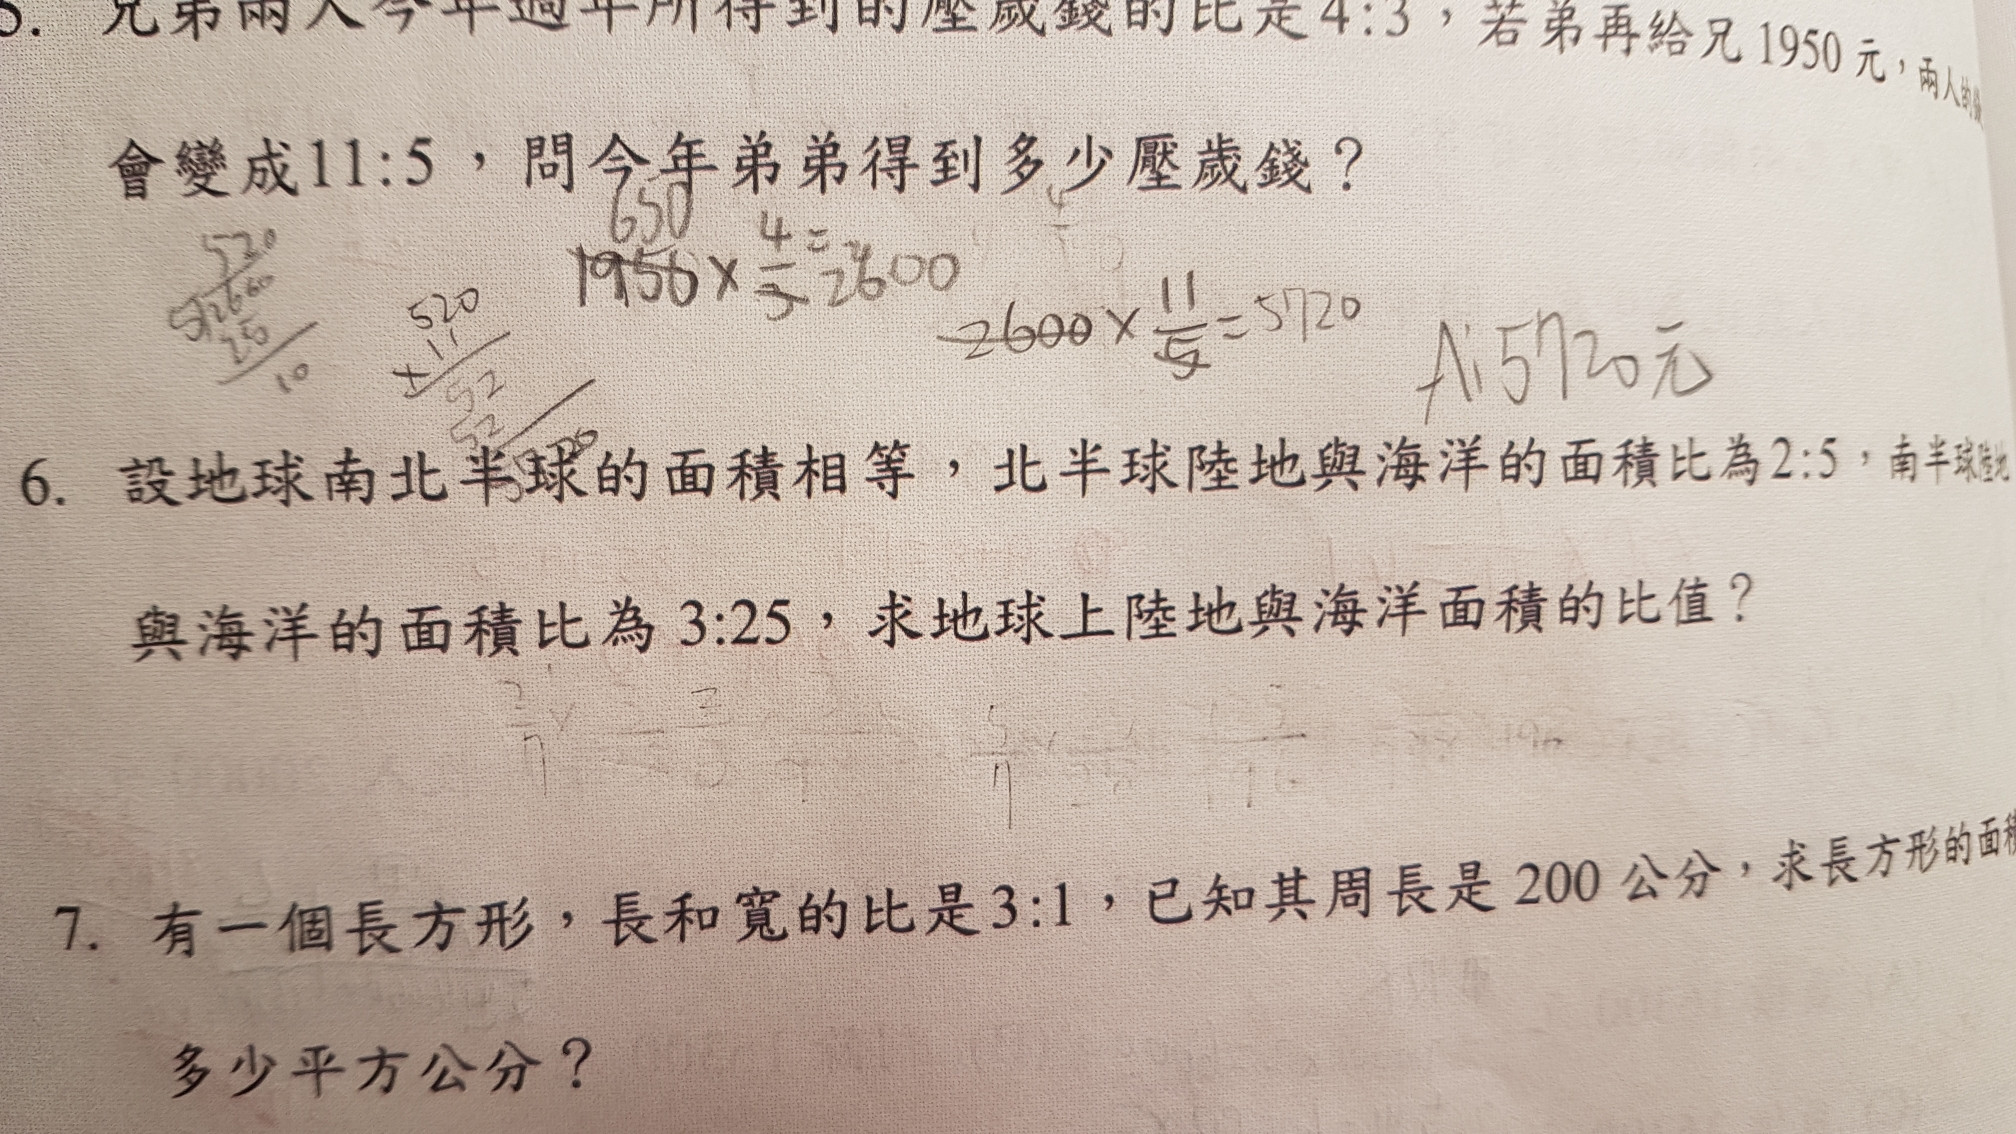 5. 兄弟兩人今年過年所得到的壓歲錢的比是4:3，若弟再給兄1950元，兩人的
會變成11:5，問今年弟弟得到多少壓歲錢？
650
1950 × 4/3 = 2600
520
2600 × 11/5 = 5720
A:5720元
6. 設地球南北半球的面積相等，北半球陸地與海洋的面積比為2:5，南半球陸地
與海洋的面積比為3:25，求地球上陸地與海洋面積的比值？
7. 有一個長方形，長和寬的比是3:1，已知其周長是200公分，求長方形的面積
多少平方公分？